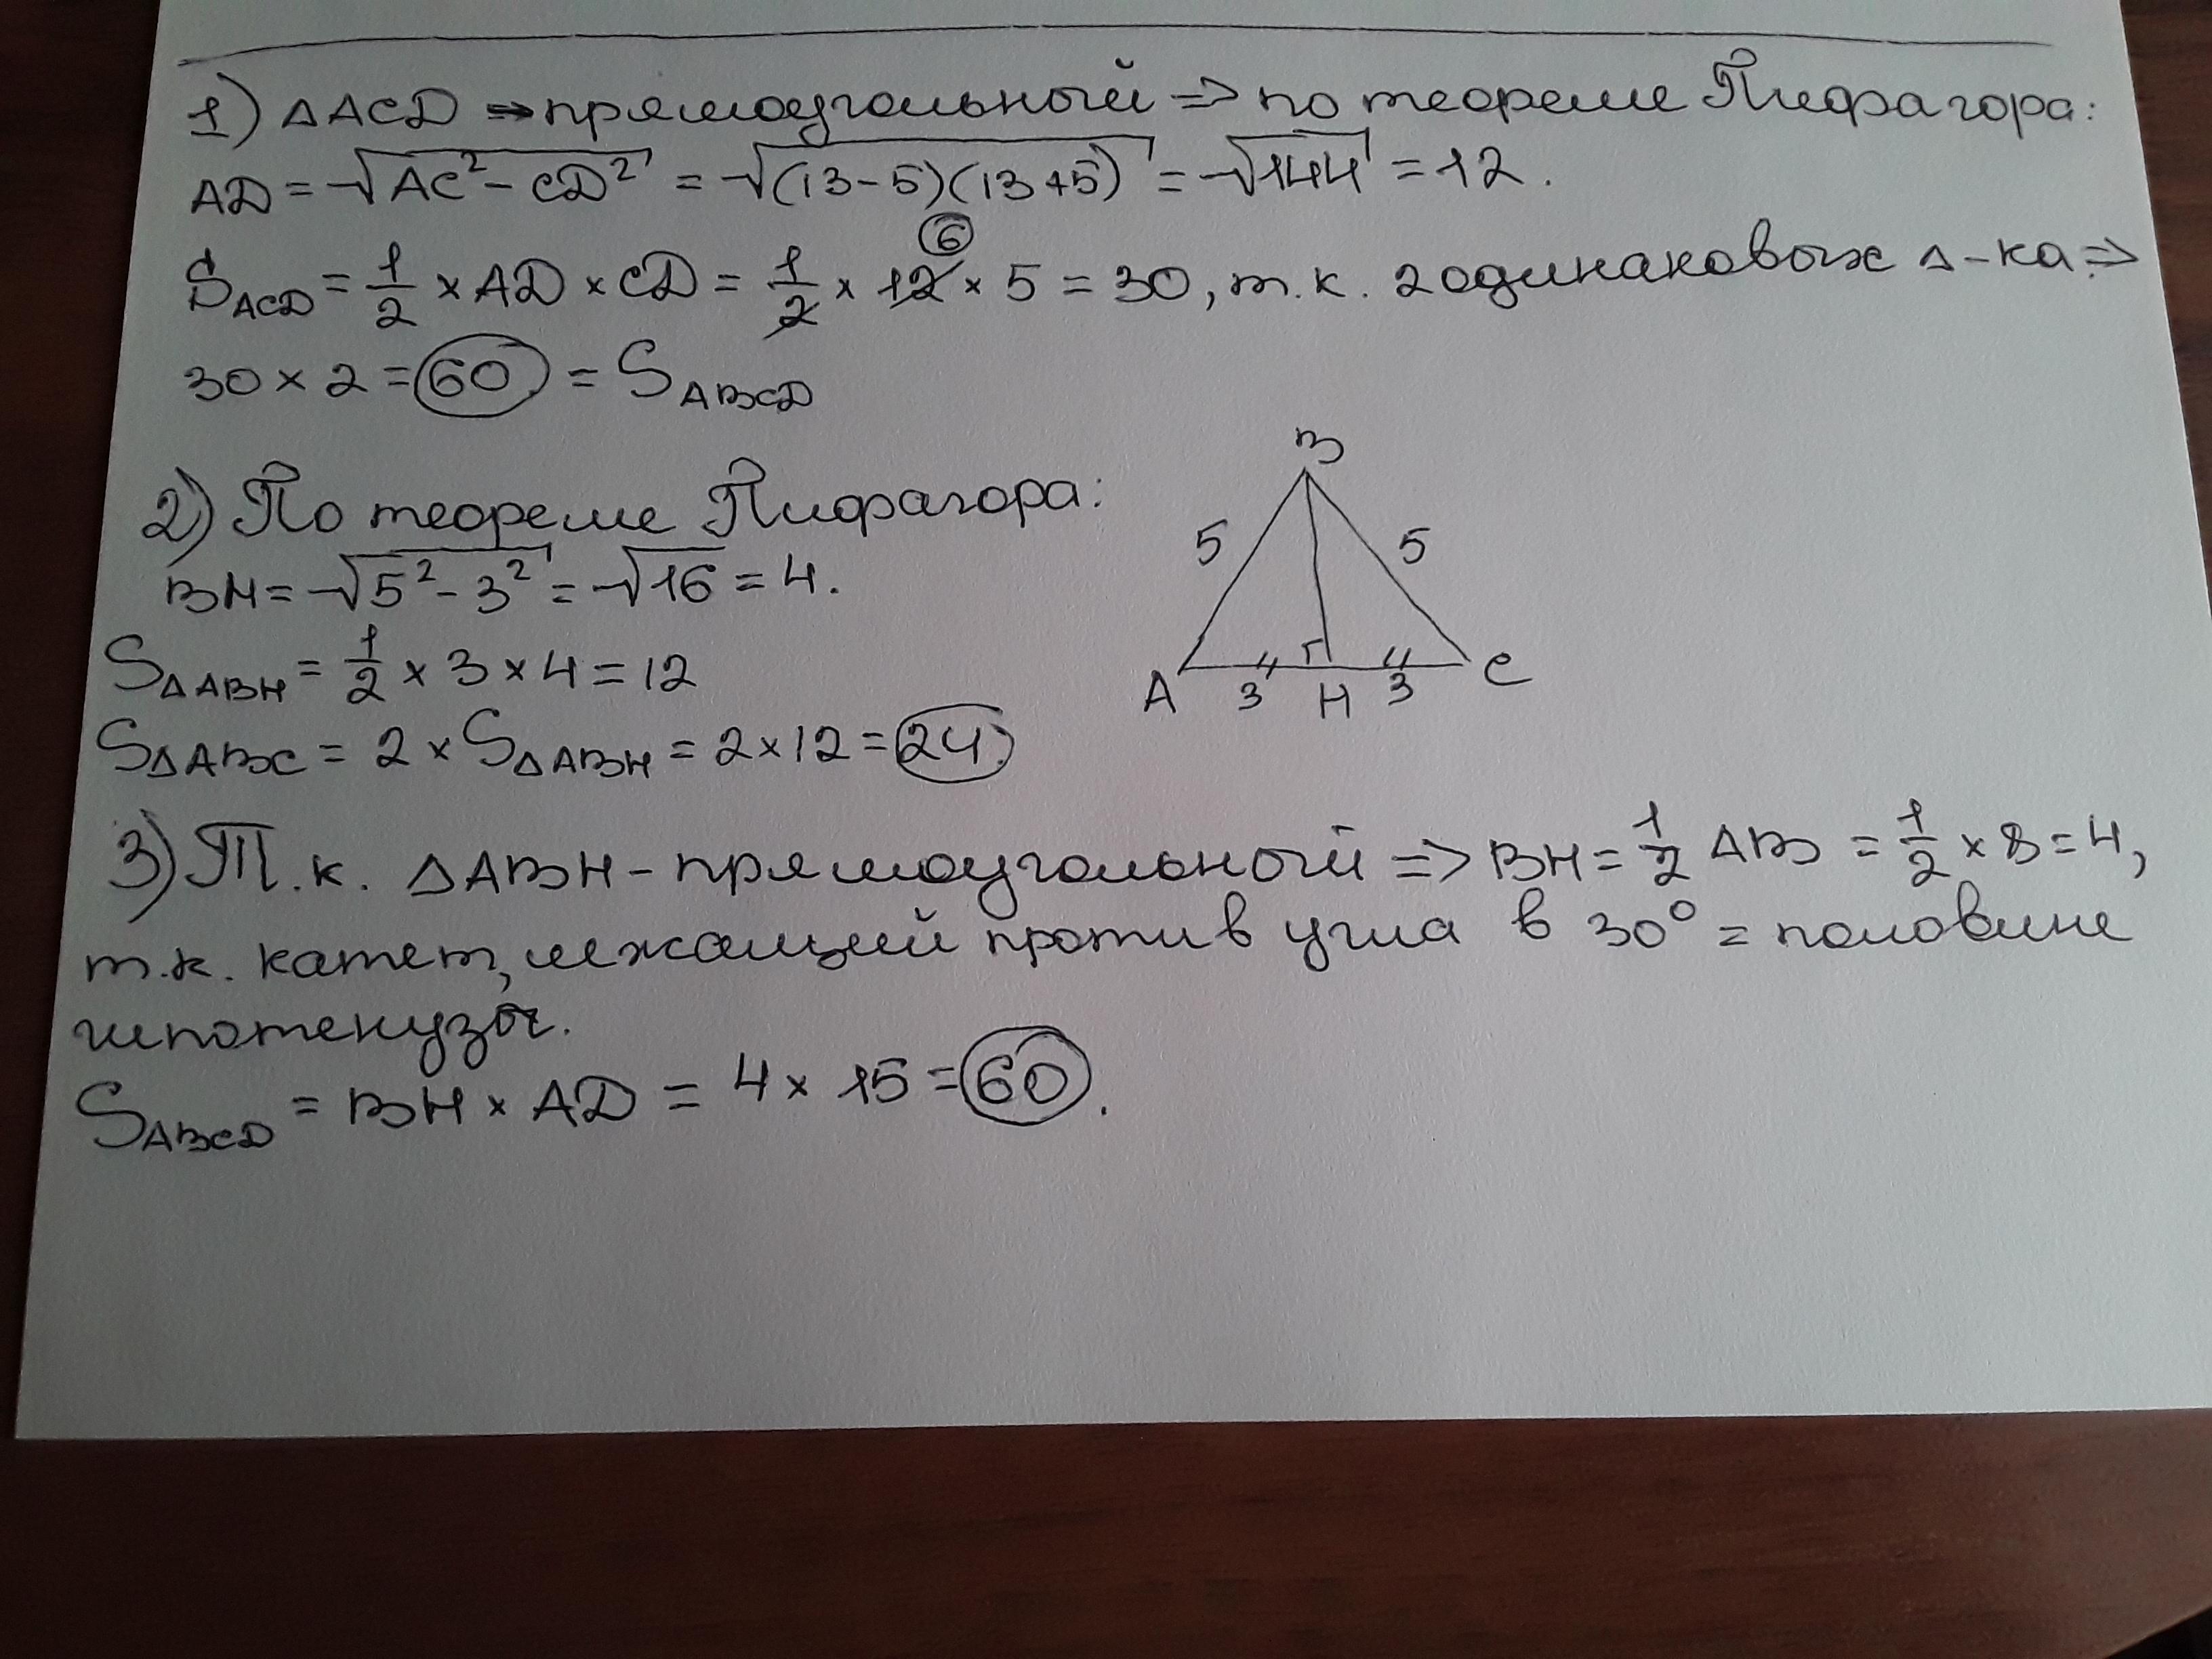 1) ΔACD ⇒ прямоугольный ⇒ по теореме Пифагора:
AD = √AC² - CD² = √(13-5)(13+5) = √144 = 12.
S ACD = 1/2 × AD × CD = 1/2 × 12 × 5 = 30, т.к. 2 одинаковых Δ-ка ⇒
6
30 × 2 = 60 = S ABCD
2) По теореме Пифагора:
BH = √5² - 3² = √16 = 4.
S ΔABH = 1/2 × 3 × 4 = 12
S ΔABC = 2 × S ΔABH = 2 × 12 = 24.
B
5 5
A 3 H 3 C
3) Т.к. ΔABH - прямоугольный ⇒ BH = 1/2 AB = 1/2 × 8 = 4,
т.к. катет, лежащий против угла в 30° = половине
гипотенузы.
S ABCD = BH × AD = 4 × 15 = 60.